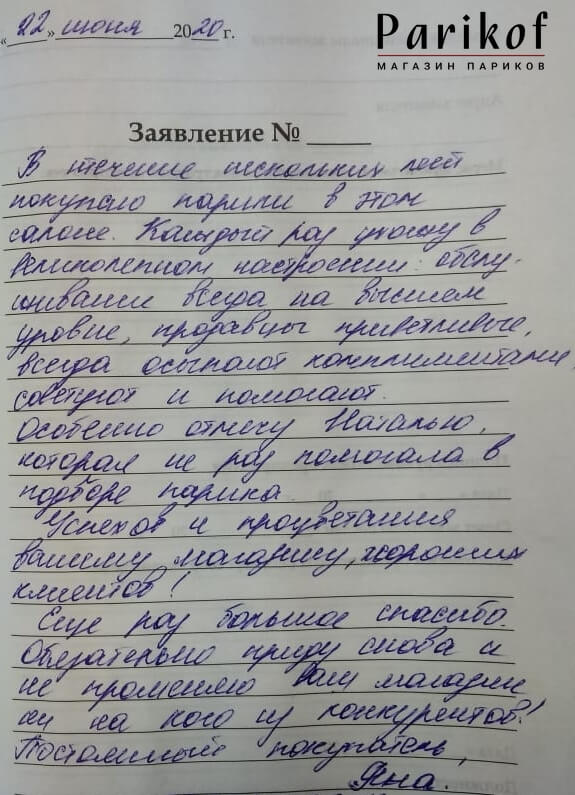 Parikof
МАГАЗИН ПАРИКОВ
«22» июня 2020 г.
Заявление №
В течение нескольких лет
покупаю парики в этом
салоне. Каждый раз ухожу в
великолепном настроении: обслу-
живании всегда на высшем
уровне, продавцы приветливые,
всегда осыпают комплиментами,
советуют и помогают.
Особенно отмечу Наталью,
которая не раз помогала в
подборе парика.
Успехов и процветания
вашему магазину, хороших
клиентов!
Еще раз большое спасибо.
Обязательно приду снова и
не променяю Ваш магазин
ни на кого из конкурентов!
Постоянный покупатель,
Яна.